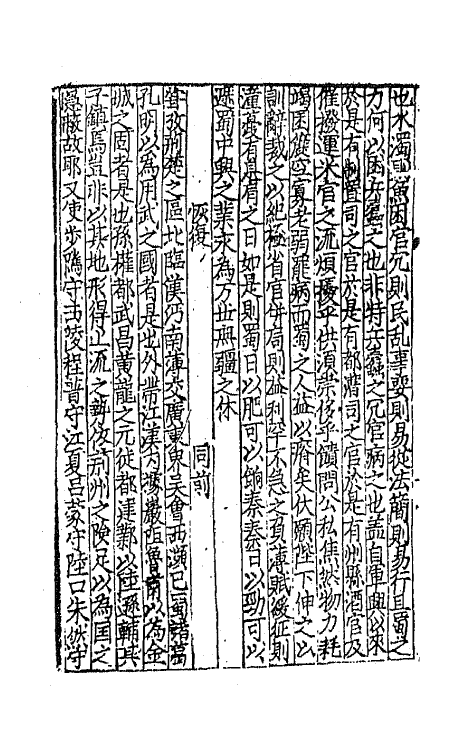 也水濁則魚困官冗則民乱事要則易從法簡則易行且蜀之
力何以困兵蠹之也非特兵蠹之冗官病之也盖自軍興以来
於是有制置司之官於是有都漕司之官於是有州縣酒官及
催撥運米官之流煩擾乎供須荣侈乎饋問公私焦然物力耗
竭困獲空寡老弱罷病而蜀之人益以瘠矣伏願陛下伸之以
訓辭裁之以紀極省官併局則益利罕不急之負薄賦後征則
潼夔有息肩之日如是則蜀日以肥可以餉秦秦日以勁可以
蹙蜀中興之業永為万世無疆之休
恢復 同前
嘗攷荊楚之區北臨漢沔南薄交廣東界吳會西瀕巴蜀諸葛
孔明以為用武之國者是也外帶江漢内據巖阻魯肅以為金
城之固者是也孫權都武昌黃龍之元徙都建鄴以陸遜輔其
子鎮焉豈非以其地形得上流之勢依荊州之險足以為国之
屏蔽故耶又使步隲守西陵程普守江夏呂蒙守陸口朱然守